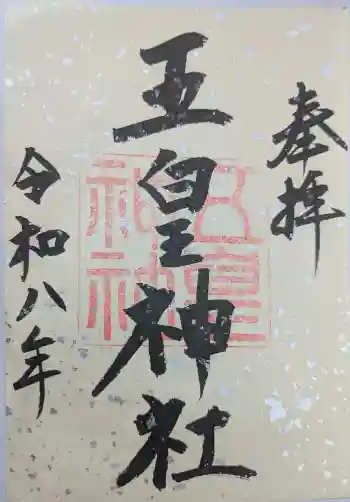 奉拝
五皇神社
五皇
神社
令和八年